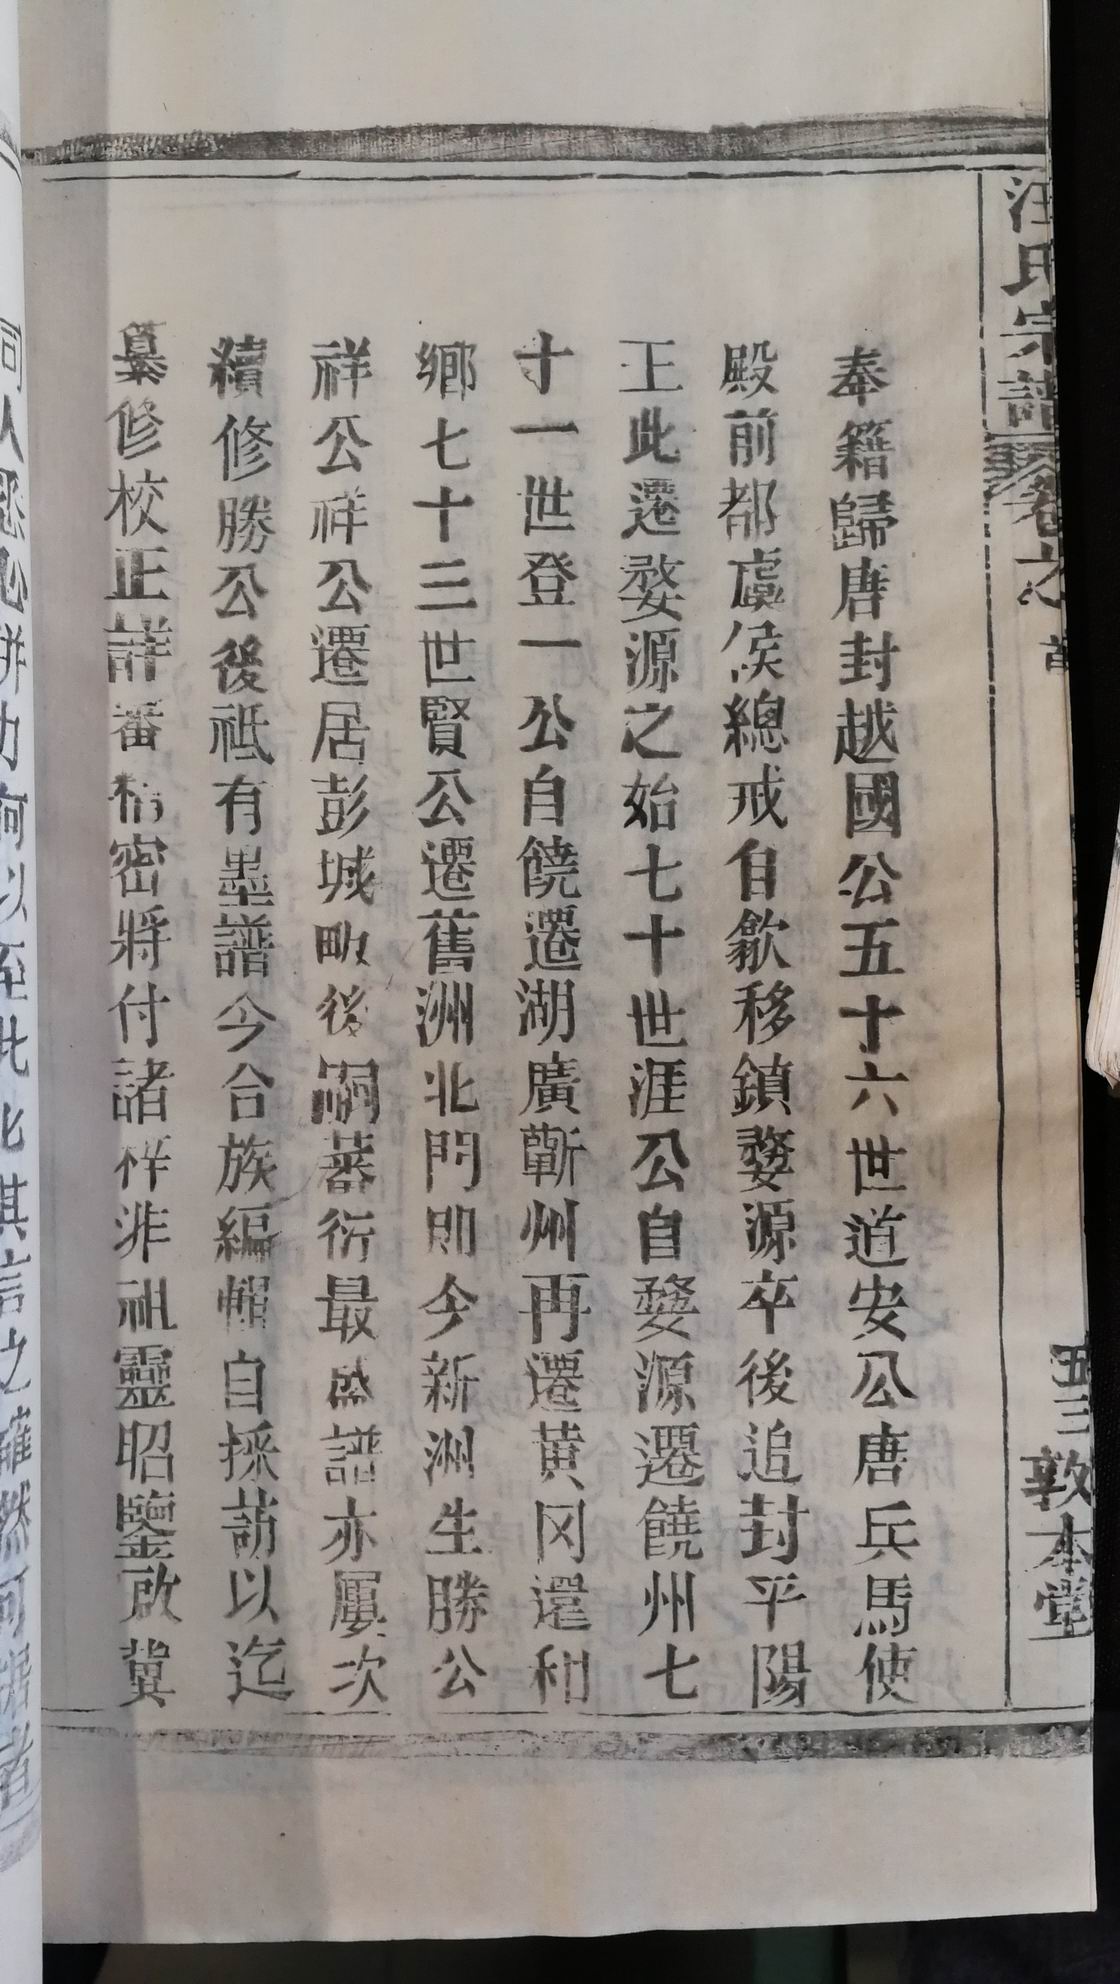 汪氏宗譜 卷之首 五三 敦本堂
奉籍歸唐封越國公五十六世道安公唐兵馬使
殿前都虞侯總戎自歙移鎮婺源卒後追封平陽
王此遷婺源之始七十世涯公自婺源遷饒州七
十一世登一公自饒遷湖廣蘄州再遷黄冈還和
鄉七十三世賢公遷舊洲北門即今新洲生勝公
祥公祥公遷居彭城畈後嗣蕃衍最盛譜亦屢次
續修勝公後祗有墨譜今合族編輯自採訪以迄
纂修校正詳審精密將付諸梓非祖靈昭鑒啟冀
同人 力何以至此 其言之 然可據者